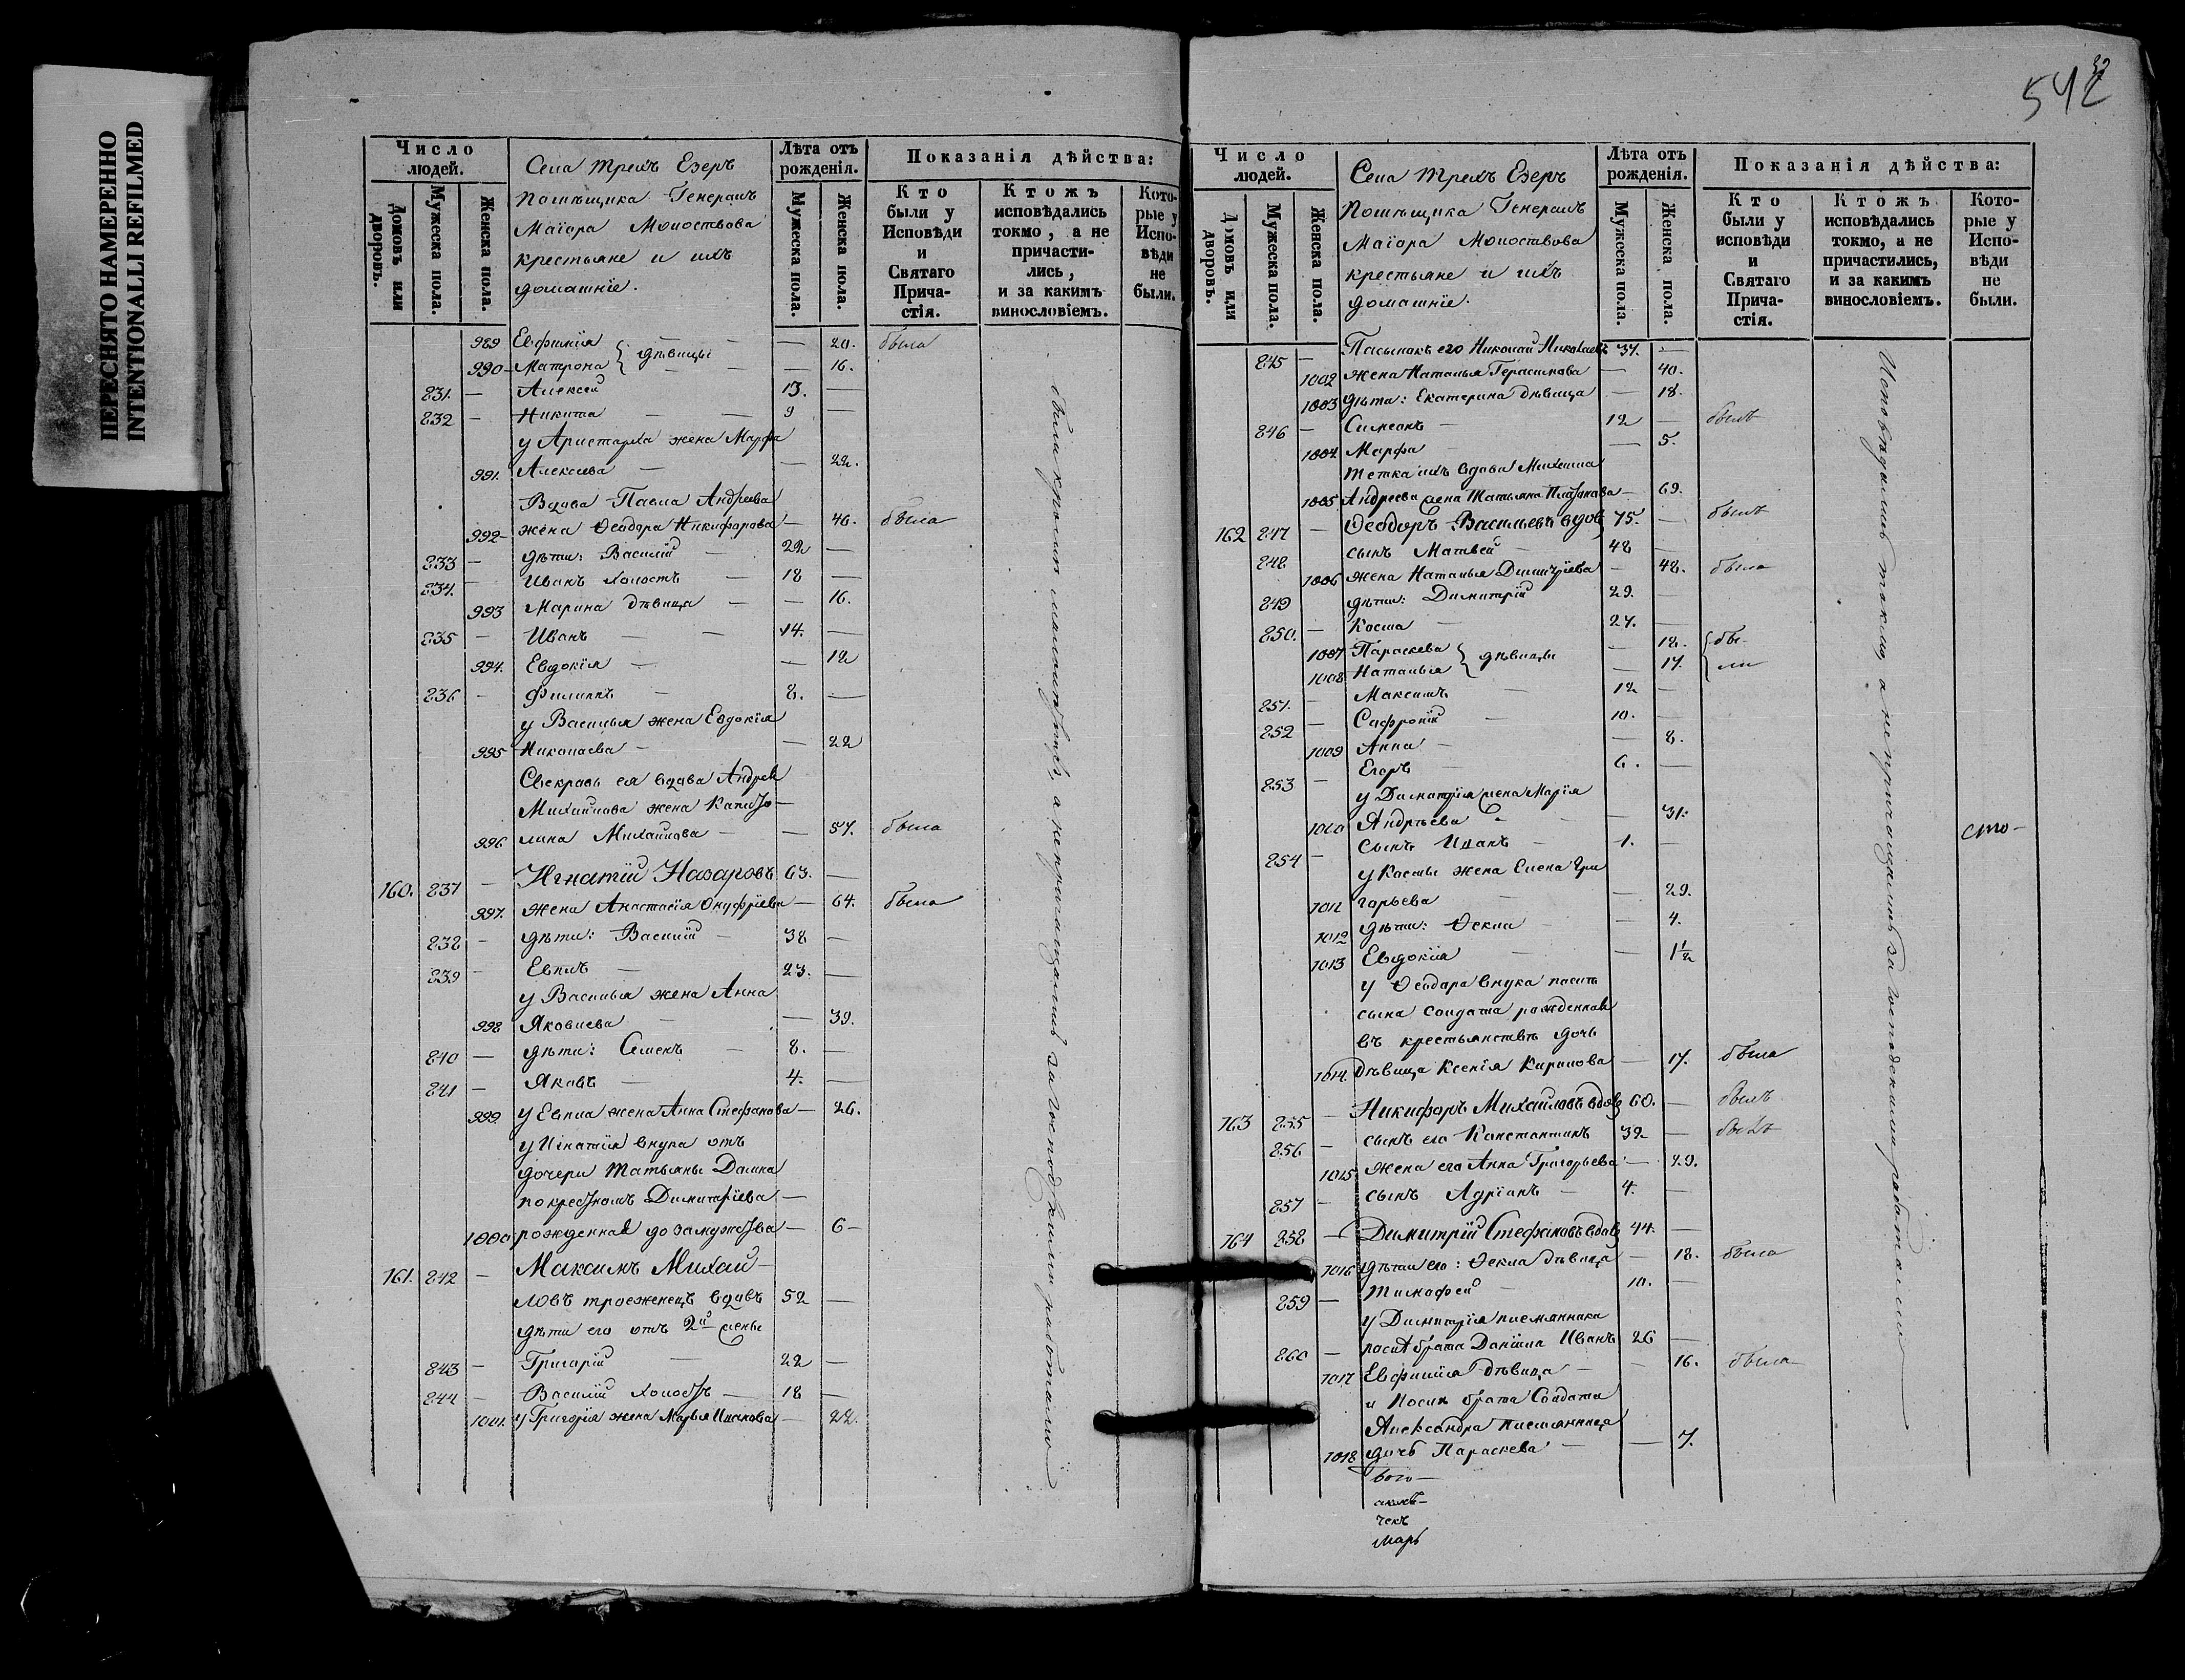 ПЕРЕСНЯТО НАМЕРЕННО
INTENTIONALLI REFILMED
542
Число людей.
Домовъ или дворовъ.
Мужеска пола.
Женска пола.
Села Трехъ Езеръ
Помѣщика Генералъ
Маіора Молоствова
крестьяне и ихъ
домашніе.
Лѣта отъ рожденія.
Мужеска пола.
Женска пола.
Показанія дѣйства:
Кто были у Исповѣди и Святаго Причастія.
Ктожъ исповѣдались токмо, а не причастились, и за какимъ винословіемъ.
Которые у Исповѣди не были.
989 Евфимія — 20. была
990 Матрона } дѣвицы — 16.
831. — Алексей 13. —
832 — Никита 9 —
у Аристарха жена Марфа
991. Алексѣева — 22.
Вдова Павла Андреева
992 жена Ѳеодора Никифорова — 40. была
833 — дѣти: Василій 22 —
834. Иванъ холостъ 18 —
993 Марина дѣвица — 16.
835 — Иванъ 14. —
994. Евдокія — 12
836 — Филиппъ 8. —
у Василья жена Евдокія
995 Николаева — 22
Свекровь ея вдова Андрея
Михайлова жена Капито-
996 лина Михайлова — 57. была
160. 837 — Игнатій Назаровъ 63. —
997. жена Анастасія Онуфріева — 64. была
838 — дѣти: Василій 38 —
839 — Евплъ 23. —
у Василья жена Анна
998 Яковлева — 39.
840 — дѣти: Семенъ 8. —
841 — Яковъ 4. —
999 у Евпла жена Анна Стефанова — 26.
у Игнатія внука отъ
дочери Татьяны Домна
по крестномъ Димитріева —
1000 рожденная до замужства — 6 —
161. 842 — Максимъ Михай-
ловъ троеженецъ вдовъ 52 —
дѣти его отъ 2й жены
843 — Григорій 22 —
844 — Василій холостъ — 18 —
1001. у Григорія жена Марья Иванова — 22.
были кромѣ малолѣтныхъ, а непричащались за господскими работами
Число людей.
Домовъ или дворовъ.
Мужеска пола.
Женска пола.
Села Трехъ Езеръ
Помѣщика Генералъ
Маіора Молоствова
крестьяне и ихъ
домашніе.
Лѣта отъ рожденія.
Мужеска пола.
Женска пола.
Показанія дѣйства:
Кто были у исповѣди и Святаго Причастія.
Ктожъ исповѣдались токмо, а не причастились, и за какимъ винословіемъ.
Которые у Исповѣди не были.
845 — Пасынокъ его Николай Николаевъ 37. —
1002 жена Наталья Герасимова — 40.
1003 дѣти: Екатерина дѣвица — 18.
846 — Симеонъ — 12 — былъ
1004 Марфа — 5.
Тетка ихъ вдова Михаила
1005 Андреева жена Татьяна — 69.
162 847 — Ѳеодоръ Васильевъ вдовъ 75. — былъ
848 сынъ Матвей 48 —
1006 жена Наталья Димитріева — 48. была
849 дѣти: Димитрій 29. —
850. — Косма 27. —
1007 Параскева — 18. { бы-
1008 Наталья } дѣвицы — 17. ли
851. — Максимъ 12 —
852 — Сафроній 10. —
1009 Анна — 8.
853 — Егоръ 6. —
у Димитрія жена Марія
1010 Андрѣева — 31.
854 — сынъ Иванъ 1. —
у Космы жена Елена Гри
1011 горьева — 29.
1012 дѣти: Ѳекла — 4.
1013 Евдокія — 1½
у Ѳеодора внука послѣ
сына солдата рожденная
въ крестьянствѣ дочь
1014. дѣвица Ксенія Карпова — 17. была
163 855 — Никифоръ Михайловъ вдовъ 60. — былъ
856 — сынъ его Константинъ 32 — былъ
1015 жена его Анна Григорьева — 29.
857 — сынъ Адріанъ — 4. —
164 858 — Димитрій Стефановъ вдовъ 44. —
1016 дѣти его: Ѳекла дѣвица — 18. была
859 — Тимофей 10. —
у Димитрія племянники
860 — послѣ брата Даніила Иванъ 26 —
1017 Евфимія дѣвица — 16. была
и послѣ брата Солдата
Александра племянница
1018 дочь Параскева — 7.
Исповѣдались токмо, а непричащались за господскими работами
сто-
бого-
чекъ
марь